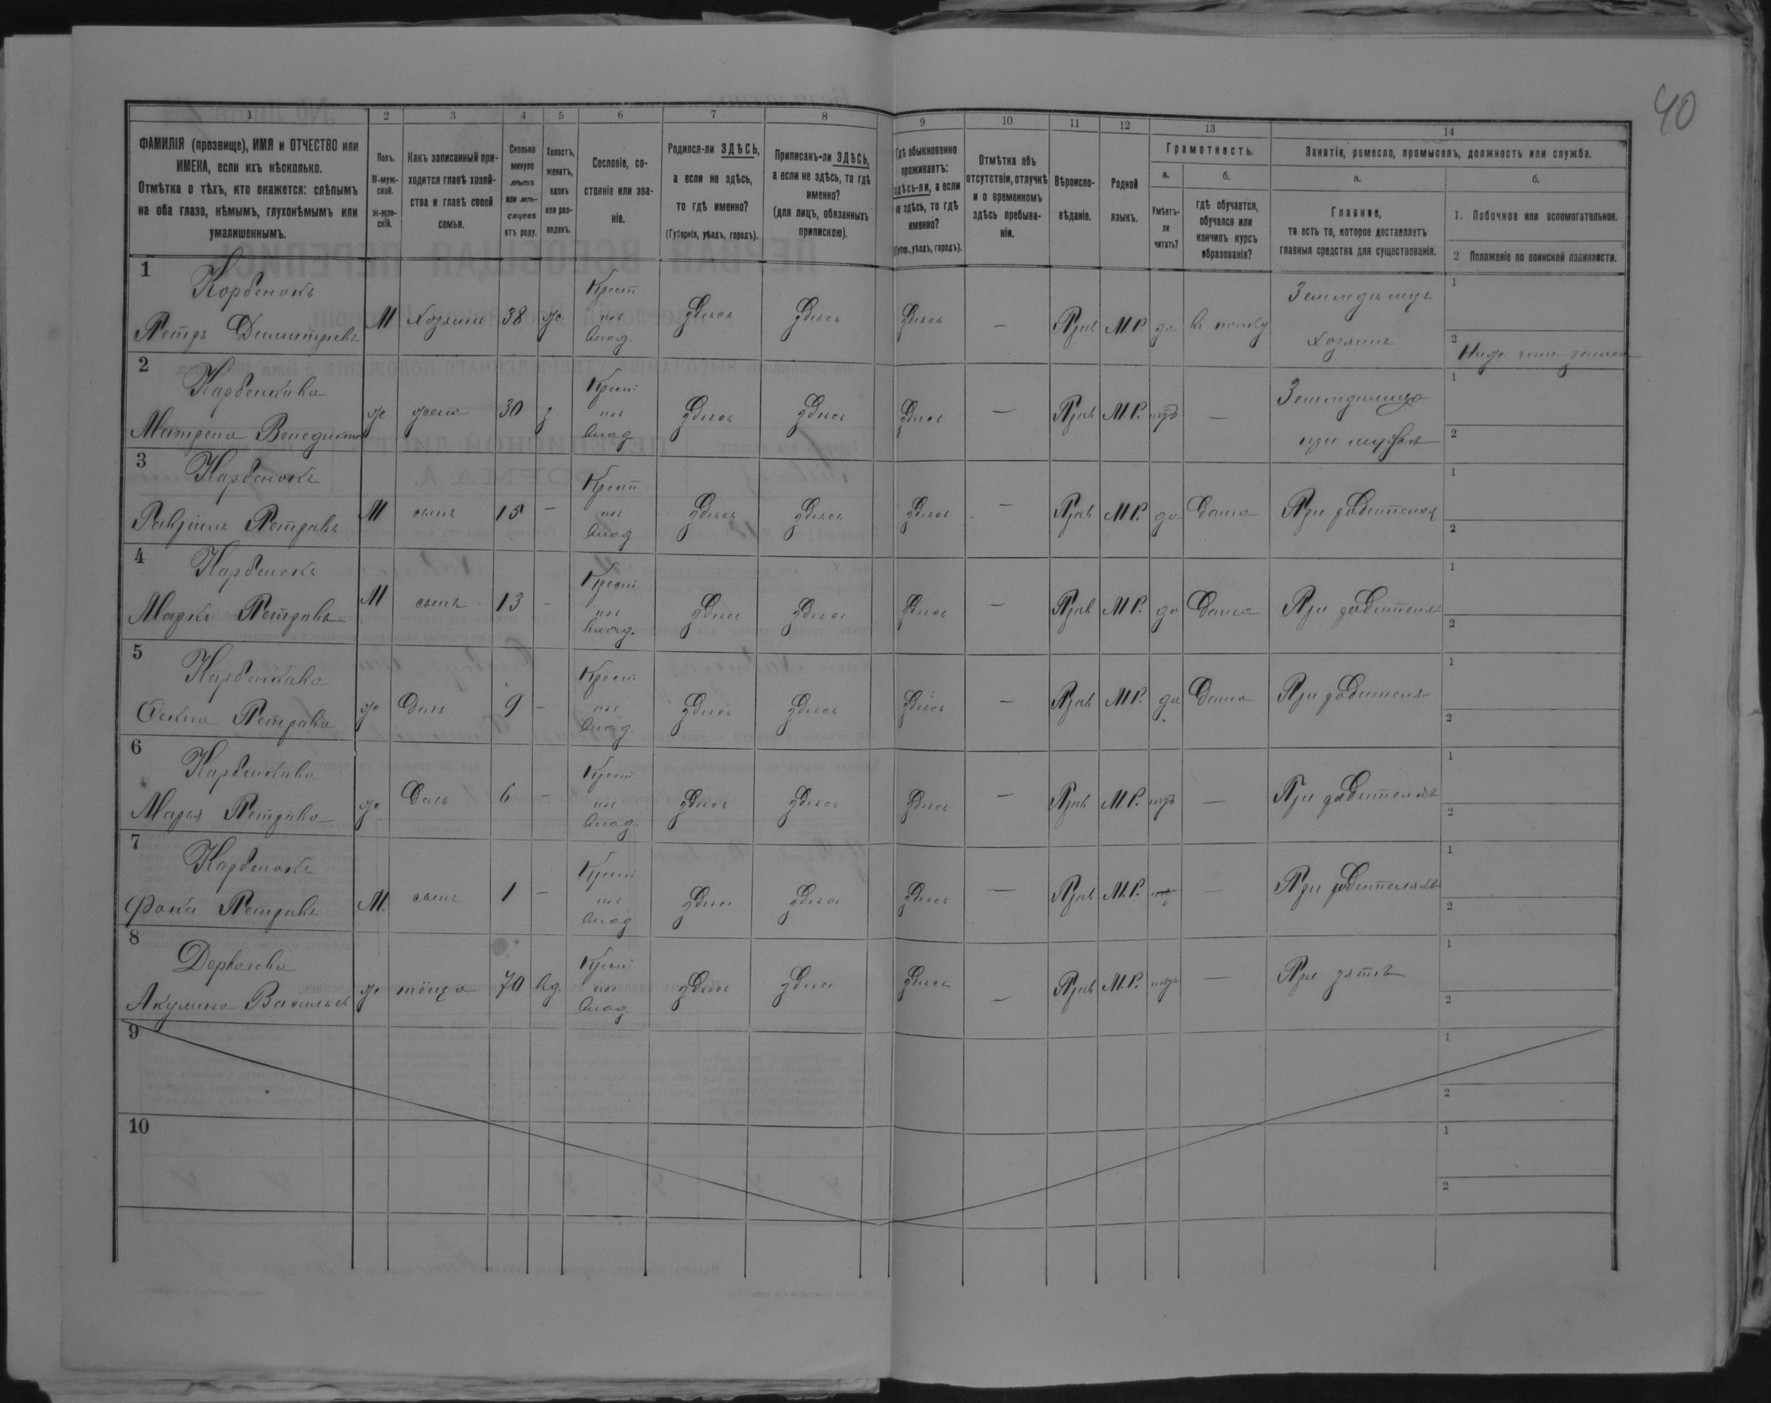 40
1
2
3
4
5
6
7
8
9
10
11
12
13
14
ФАМИЛІЯ (прозвище), ИМЯ и ОТЧЕСТВО или
ИМЕНА, если ихъ нѣсколько.
Отмѣтка о тѣхъ, кто окажется: слѣпымъ
на оба глаза, нѣмымъ, глухонѣмымъ или
умалишеннымъ.
Полъ.
М-муж-
ской.
ж-жен-
скій.
Какъ записанный при-
ходится главѣ хозяй-
ства и главѣ своей
семьи.
Сколько
минуло
лѣтъ
или мѣ-
сяцевъ
отъ роду.
Холостъ,
женатъ,
вдовъ
или раз-
веденъ.
Сословіе, со-
стояніе или зва-
ніе.
Родился-ли ЗДѢСЬ,
а если не здѣсь,
то гдѣ именно?
(Губернія, уѣздъ, городъ).
Приписанъ-ли ЗДѢСЬ,
а если не здѣсь, то гдѣ
именно?
(для лицъ, обязанныхъ
припискою).
Гдѣ обыкновенно
проживаетъ:
здѣсь-ли, а если
не здѣсь, то гдѣ
именно?
(Губер., уѣздъ, городъ).
Отмѣтка объ
отсутствіи, отлучкѣ
и о временномъ
здѣсь пребыва-
ніи.
Вѣроиспо-
вѣданіе.
Родной
языкъ.
Грамотность.
а.
Умѣетъ-
ли
читать?
б.
гдѣ обучается,
обучался или
кончилъ курсъ
образованія?
Занятіе, ремесло, промыселъ, должность или служба.
а.
Главное,
то есть то, которое доставляетъ
главныя средства для существованія.
б.
1. Побочное или вспомогательное.
2 Положеніе по воинской повинности.
1
Корбенокъ
Петръ Димитріевъ М Хозяинъ 38 ж Крест из влад здесь здесь здесь — Прав М.Р. да
Земледелец
хозяин
1
2
2
Карбенкова
Матрена ж жена 30 з. Крест из влад здесь здесь здесь — Прав М.Р. нет —
при муже
1
2
3
Карбенокъ
Гавріилъ Петровъ М сынъ 15 — Крест из влад здесь здесь здесь — Прав М.Р. да При родителях
1
2
4
Карбенокъ
Марко Петровъ М сынъ 13 — Крест из влад. здесь здесь здесь — Прав М.Р. да При родителях
1
2
5
Карбенкова
Петрова ж дочь 9 — Крест из влад здесь здесь здесь — Прав М.Р. да При родителях
1
2
6
Карбенкова
Марья Петрова ж дочь 6 — Крест из влад. здесь здесь здесь — Прав М.Р. нетъ — При родителях
1
2
7
Карбенокъ
Фока Петровъ М. сынъ 1 — Крест из влад здесь здесь здесь — Прав М.Р. нет — При родителяхъ
1
2
8
Акулина Васильев ж тёща 70 вд. Крест из влад здесь здесь здесь — Прав М.Р. нетъ — При зяте
1
2
9
1
2
10
1
2